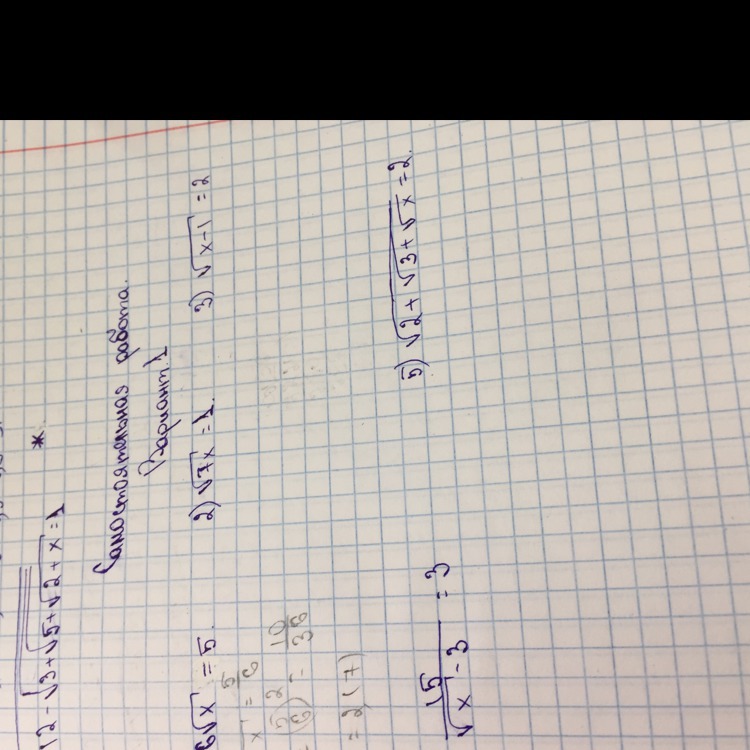 √2 - √3 + √5 + √2 + x = 1
*
Самостоятельная работа.
Вариант 1
6√x = 5. 2) √7x = 1. 3) √x-1 = 2
x = 5/6
= 2,(7)
15/√x-3 = 3 5) √2+√3+√x = 2.